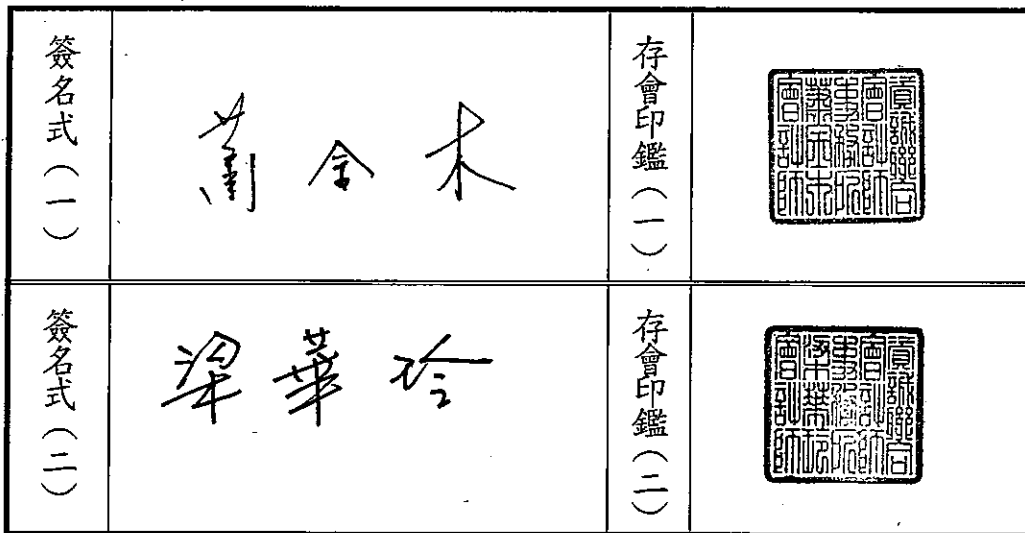 簽名式(一)
蕭金木
存會印鑑(一)
資誠聯合
會計師
事務所
蕭金木
會計師
簽名式(二)
梁華玲
存會印鑑(二)
資誠聯合
會計師
事務所
梁華玲
會計師